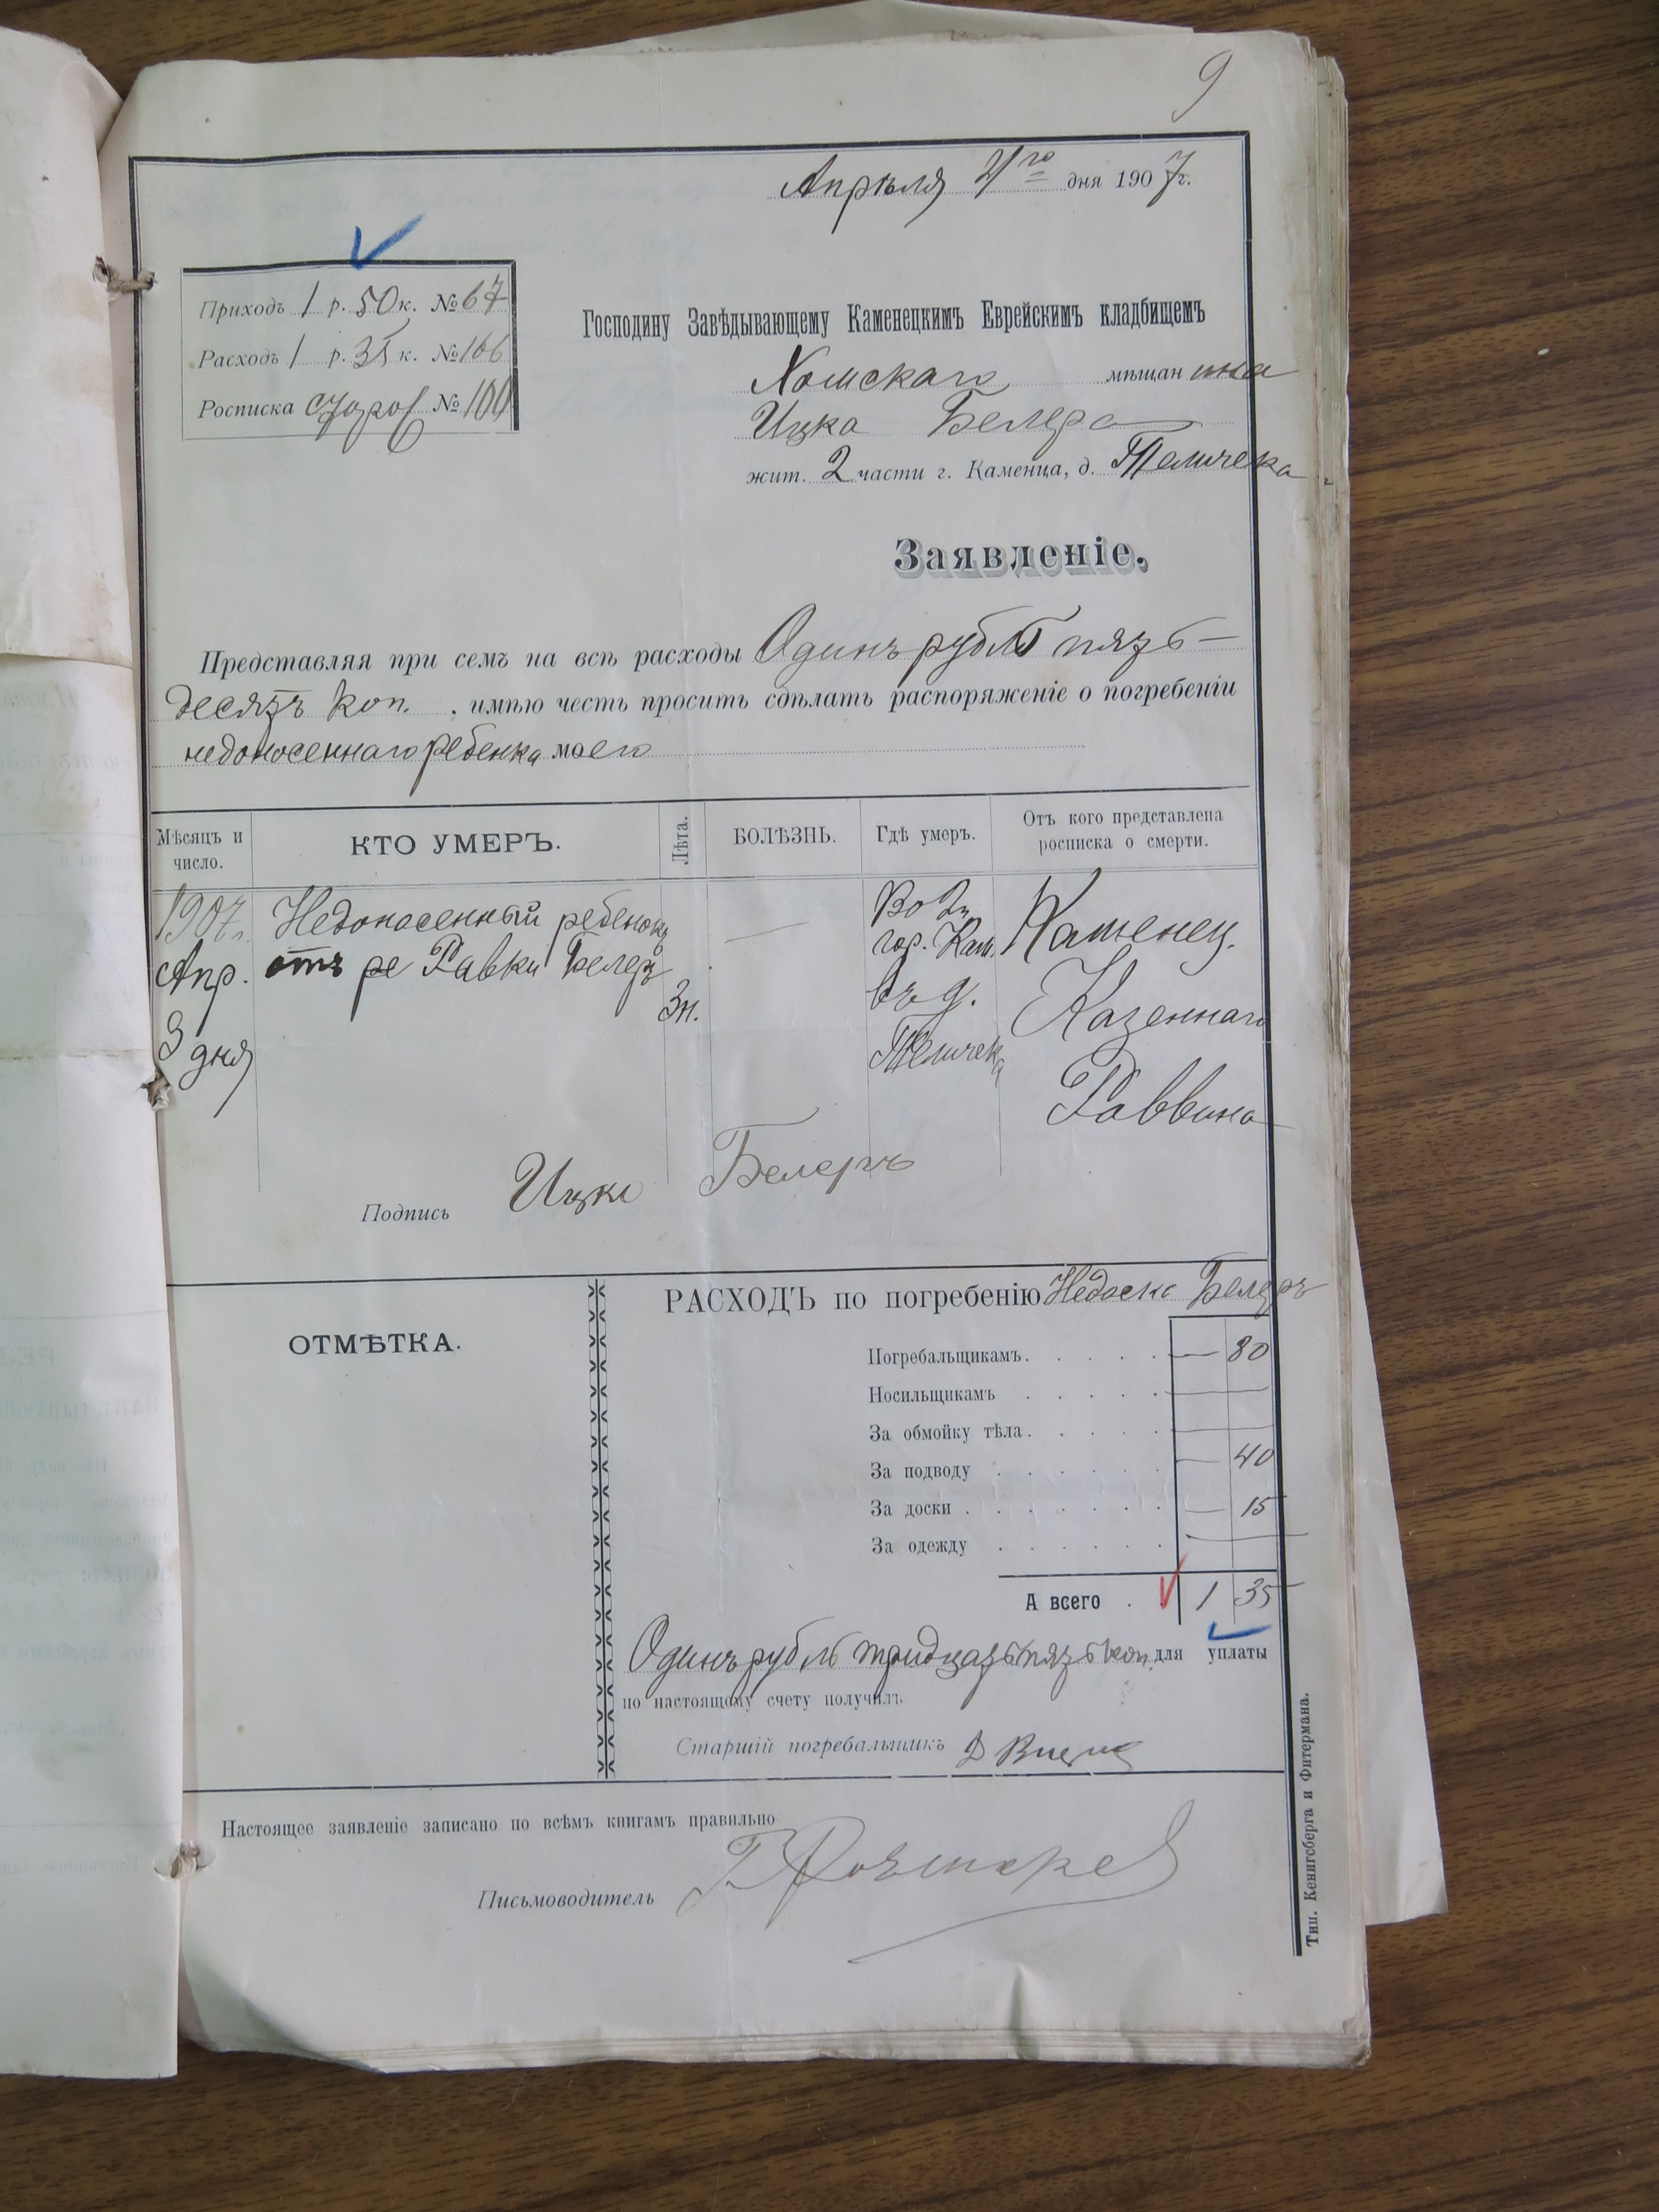 9
Апрѣля 4го дня 1907 г.
Приходъ 1 р. 50 к. № 67
Расходъ 1 р. 35 к. № 106
Росписка № 100
Господину Завѣдывающему Каменецкимъ Еврейскимъ кладбищемъ
мѣщанина
Ицка Белера
жит. 2 части г. Каменца, д.
Заявленіе.
Представляя при семъ на всѣ расходы Одинъ рубль пять-
десятъ коп., имѣю честь просить сдѣлать распоряженіе о погребеніи
недоносеннаго ребенка моего
Мѣсяцъ и число. КТО УМЕРЪ. Лѣта. БОЛѢЗНЬ. Гдѣ умеръ. Отъ кого представлена росписка о смерти.
1907 г. Недоносенный ребенокъ — Во 2 ч. Каменец.
Апр. отъ ре Равки Белеръ гор. Кам. Казеннаго
3 дня 3 н. въ д. Раввина
Подпись Ицко Белеръ
ОТМѢТКА.
РАСХОДЪ по погребенію Недоска Белеръ
Погребальщикамъ. — 80
Носильщикамъ —
За обмойку тѣла. —
За подводу — 40
За доски — 15
За одежду —
А всего 1 35
Одинъ рубль тридцать пять коп. для уплаты
по настоящему счету получилъ
Старшій погребальщикъ
Настоящее заявленіе записано по всѣмъ книгамъ правильно
Письмоводитель
Тип. Кенигсберга и Фитермана.